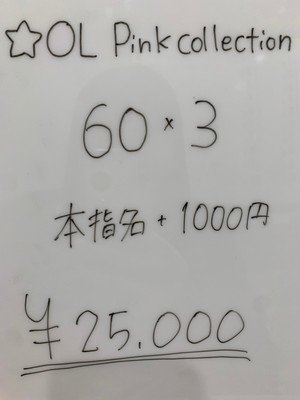 ☆OL Pink collection
60×3
本指名+1000円
¥25.000